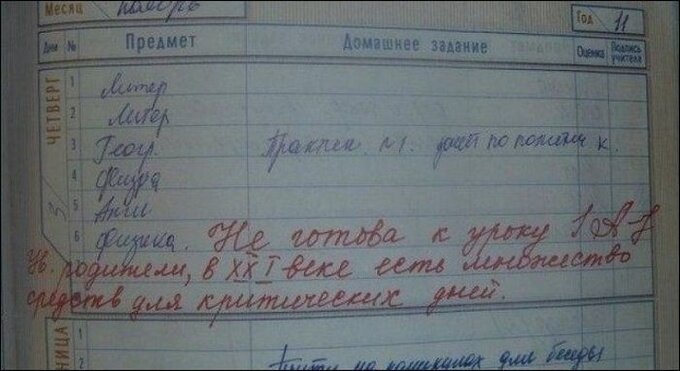 Месяц ноябрь Год 11
Дни № Предмет Домашнее задание Оценка Подпись учителя
ЧЕТВЕРГ 3
1 Литер
2 Литер
3 Геогр. Практич. №1. к.
4 Физра
5 Англ
6 Физика. Не готова к уроку
Ув. родители, в XXI веке есть множество
средств для критических дней.
НИЦА
1
2 на каникулах для беседы